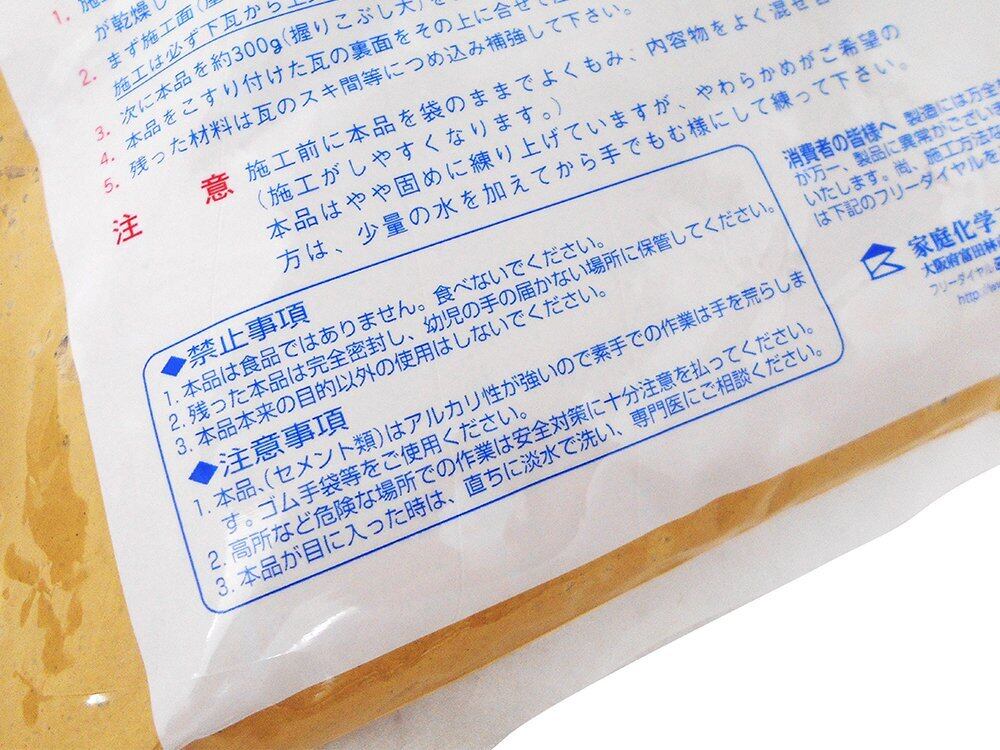 1.
が乾燥し
2. まず施工面(
施工は必ず下瓦から上
3. 次に本品を約300g(握りこぶし大)を
4. 本品をこすり付けた瓦の裏面をその上に合せて
5. 残った材料は瓦のスキ間等につめ込み補強して下さい。
注 意 施工前に本品を袋のままでよくもみ、内容物をよく混ぜ合
(施工がしやすくなります。)
本品はやや固めに練り上げていますが、やわらかめがご希望の
方は、少量の水を加えてから手でもむ様にして練って下さい。
◆禁止事項
1. 本品は食品ではありません。食べないでください。
2. 残った本品は完全密封し、幼児の手の届かない場所に保管してください。
3. 本品本来の目的以外の使用はしないでください。
◆注意事項
1. 本品、(セメント類)はアルカリ性が強いので素手での作業は手を荒らしま
す。ゴム手袋等をご使用ください。
2. 高所など危険な場所での作業は安全対策に十分注意を払ってください。
3. 本品が目に入った時は、直ちに淡水で洗い、専門医にご相談ください。
消費者の皆様へ 製造には万全
が万一、製品に異常がござい
いたします。尚、施工方法な
は下記のフリーダイヤルを
家庭化学
大阪府富田林
フリーダイヤル
http://